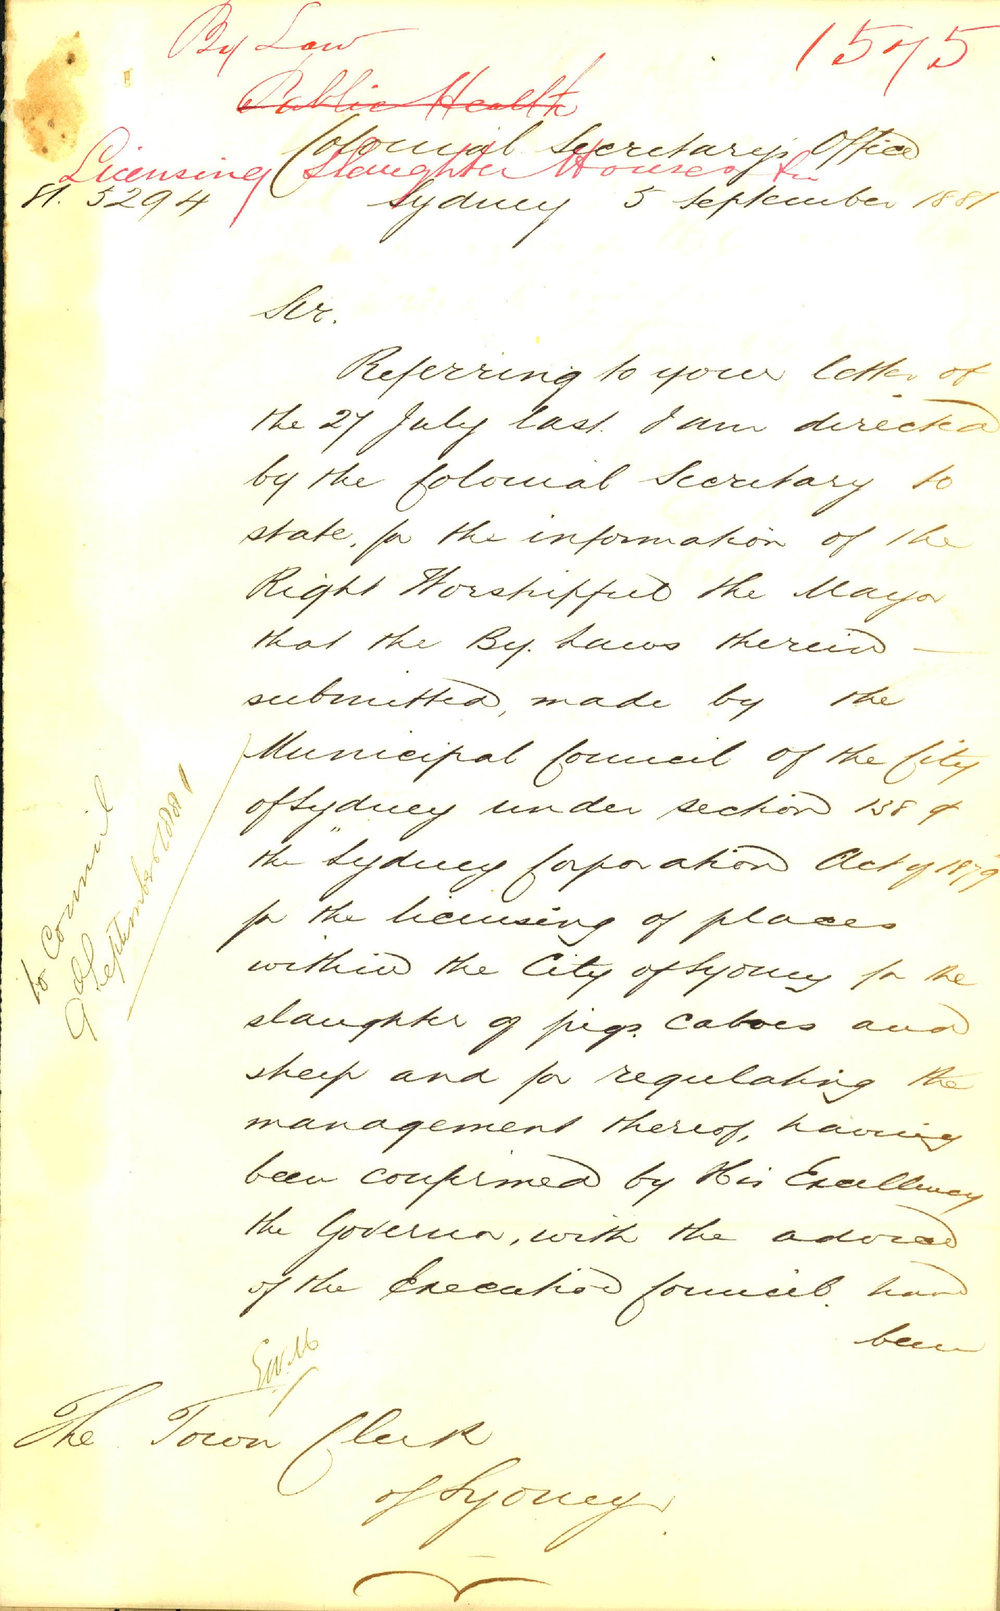 By Law
1575
Public Health
Colonial Secretary's Office
Licensing Slaughter Houses &c
81. 5294 Sydney 5 September 1881
Sir.
Referring to your letter of
the 27 July last. I am directed
by the Colonial Secretary to
state, for the information of the
Right Worshipful the Mayor
that the By. Laws therein
submitted, made by the
Municipal Council of the City
of Sydney under section 138 of
the "Sydney Corporation Act of 1879"
for the licensing of places
within the City of Sydney for the
slaughter of pigs. calves and
sheep and for regulating the
management thereof, having
been confirmed by His Excellency
the Governor, with the advice
of the Executive Council. have
been
to Council
9th September 1881
The Town Clerk
of Sydney.